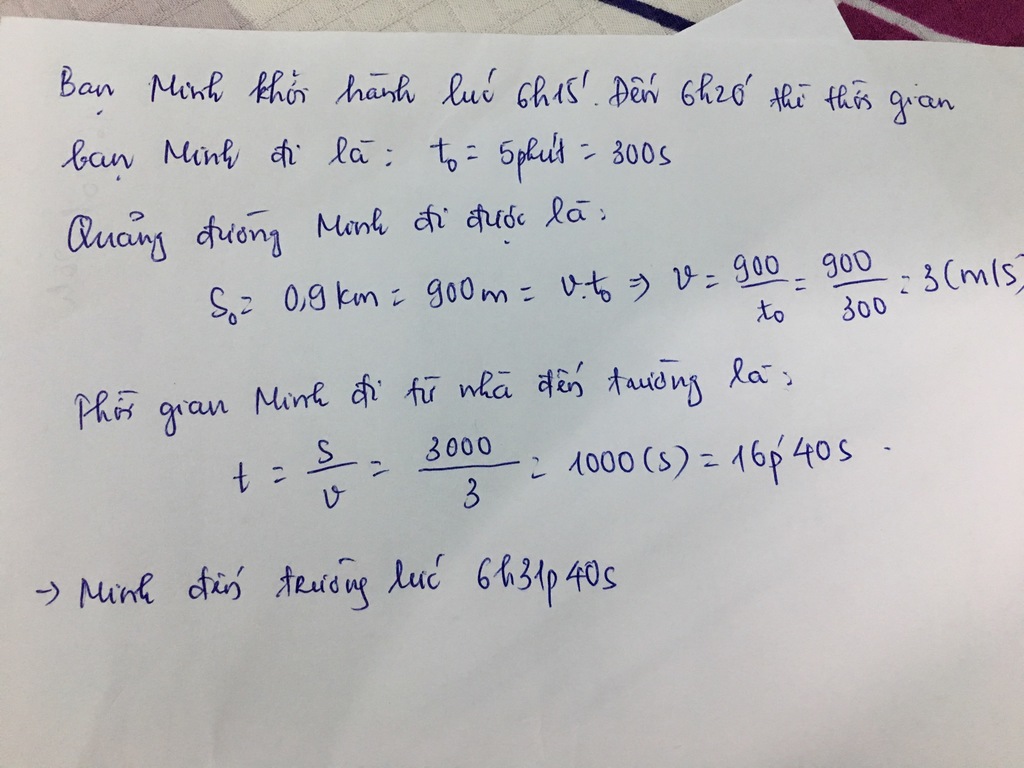 Bạn Minh khởi hành lúc 6h15'. Đến 6h20' thì thời gian
bạn Minh đi là: t₀ = 5phút = 300s
Quảng đường Minh đi được là:
S₀ = 0,9 km = 900m = v.t₀ ⇒ v = 900/t₀ = 900/300 = 3(m/s)
Thời gian Minh đi từ nhà đến trường là:
t = S/v = 3000/3 = 1000(s) = 16p'40s.
→ Minh đến trường lúc 6h31p40s